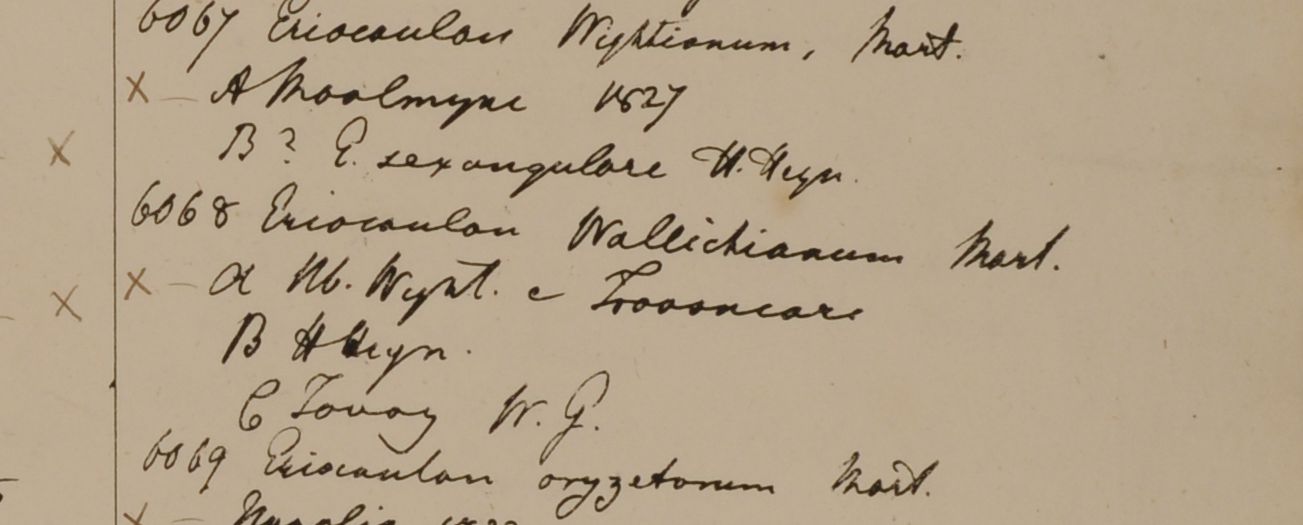 6067 Eriocaulon Wightianum, Mart.
X — A Moalmyne 1827
X B? E. sexangulare H. Heyn.
6068 Eriocaulon Wallichianum Mart.
X — a Hb. Wight. e Travancare
X B H Heyn.
C Tavoy W. G.
6069 Eriocaulon oryzetorum Mart.
X —